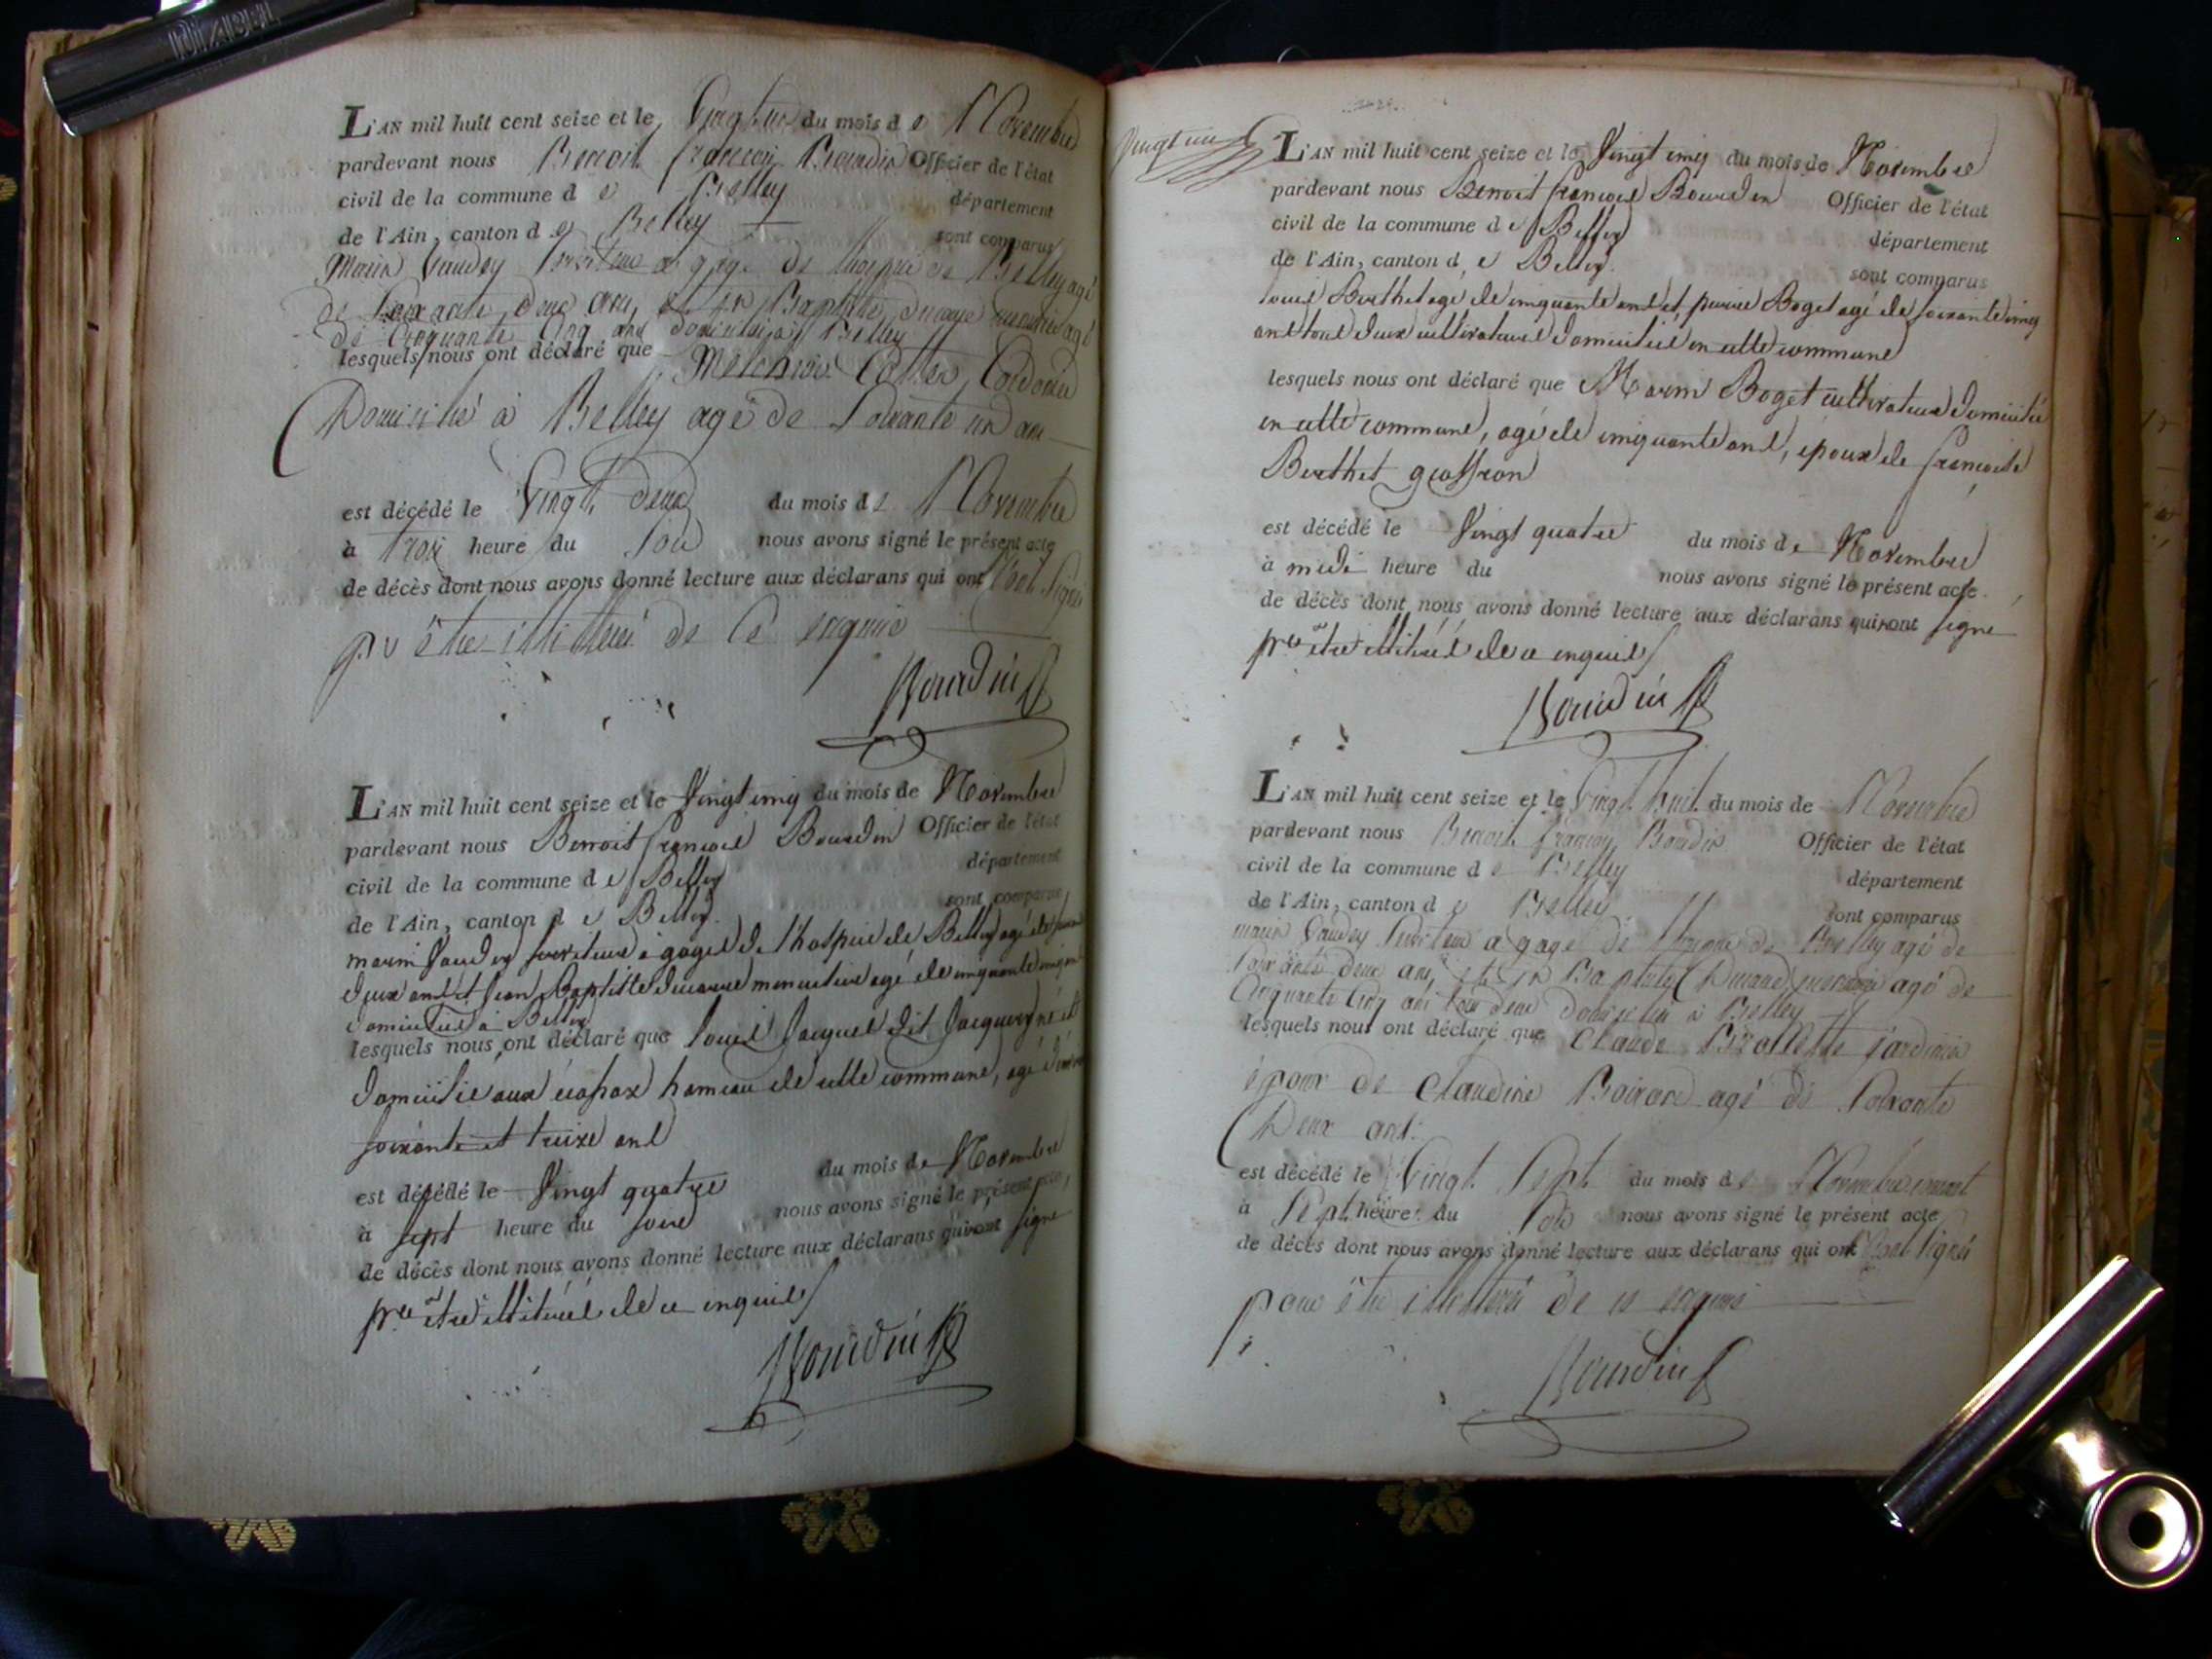 L'AN mil huit cent seize et le Vingt du mois de Novembre
pardevant nous Benoit françois Bourdin Officier de l'état
civil de la commune de Belley département
de l'Ain, canton de Belley sont comparus
Marin Vaudey Serviteur a gage de l'hospice de Belley agé
de Soixante deux ans, et Jn Baptiste menuisier agé
de Cinquante Cinq ans domiciliés a Belley
lesquels nous ont déclaré que Melchior Cordonier
Domicilié à Belley agé de Soixante un ans
est décédé le Vingt Deux du mois de Novembre
à Trois heure du Soir nous avons signé le présent acte
de décès dont nous avons donné lecture aux déclarans qui ont signé
pr être illitérés de ce enquis
Bourdin
L'AN mil huit cent seize et le Vingt cinq du mois de Novembre
pardevant nous Benoit françois Bourdin Officier de l'état
civil de la commune de Belley département
de l'Ain, canton de Belley. sont comparus
marin Vaudey serviteur à gages de l'hospice de Belley agé de
deux ans et Jean Baptiste menuisier agé de cinquante cinq ans
domiciliés à Belley
lesquels nous ont déclaré que Louis Jacquet dit né et
domicilié aux hameau de cette commune, agé
soixante et treize ans
est décédé le Vingt quatre du mois de Novembre
à sept heure du soir nous avons signé le présent acte,
de décès dont nous avons donné lecture aux déclarans qui n'ont signé
pr être illitérés de ce enquis
Bourdin
L'AN mil huit cent seize et le Vingt cinq du mois de Novembre
pardevant nous Benoit françois Bourdin Officier de l'état
civil de la commune de Belley département
de l'Ain, canton de Belley. sont comparus
Louis Berthet agé de cinquante ans et pierre Boget agé de soixante cinq
ans tous deux cultivateurs domiciliés en cette commune
lesquels nous ont déclaré que Marin Boget cultivateur domicilié
en cette commune, agé de cinquante ans, époux de françoise
Berthet
est décédé le Vingt quatre du mois de Novembre
à midi heure du nous avons signé le présent acte
de décès dont nous avons donné lecture aux déclarans qui n'ont signé
pr être illitérés de ce enquis
Bourdin
L'AN mil huit cent seize et le Vingt huit du mois de Novembre
pardevant nous Benoit françois Bourdin Officier de l'état
civil de la commune de Belley département
de l'Ain, canton de Belley sont comparus
marin Vaudey Serviteur a gage de l'hospice de Belley agé de
Soixante deux ans, et Jn Baptiste menuisier agé de
Cinquante Cinq ans tous deux domiciliés à Belley
lesquels nous ont déclaré que Claude jardinier
époux de Claudine agé de Soixante
Deux ans.
est décédé le Vingt Sept du mois de Novembre courant
à Sept heure du Soir nous avons signé le présent acte
de décès dont nous avons donné lecture aux déclarans qui ont signé
pour être illitérés de ce enquis
Bourdin